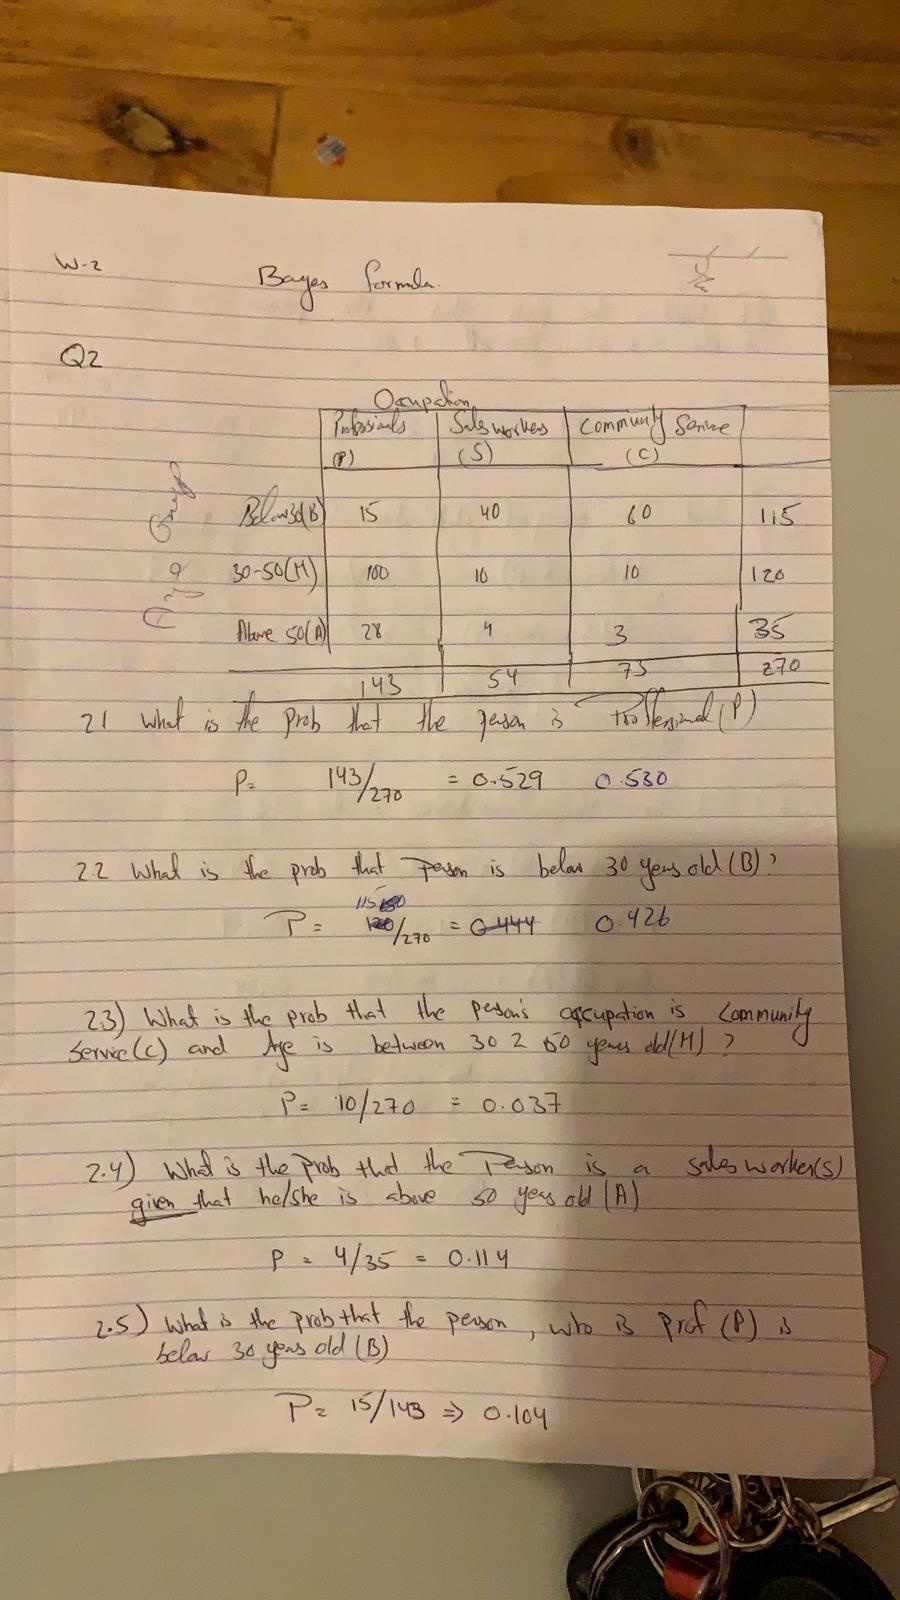 W-2 Bayes formula.
Q2
Occupation
Professionals Sales workers Community Service
(P) (S) (C)
Age Group
Below 30(B) 15 40 60 115
30-50(M) 100 10 10 120
Above 50(A) 28 4 3 35
143 54 73 270
2.1 What is the prob that the person is (P)
P= 143/270 = 0.529 0.530
2.2 What is the prob that Person is below 30 years old (B)?
115
P = 120/270 = 0.444 0.426
2.3) What is the prob that the person's occupation is Community
Service(C) and Age is between 30 2 50 years old(M) ?
P= 10/270 = 0.037
2.4) What is the Prob that the Person is a sales worker(s)
given that he/she is above 50 years old (A)
P = 4/35 = 0.114
2.5) What is the prob that the person, who is prof (P) is
below 30 years old (B)
P= 15/143 => 0.104